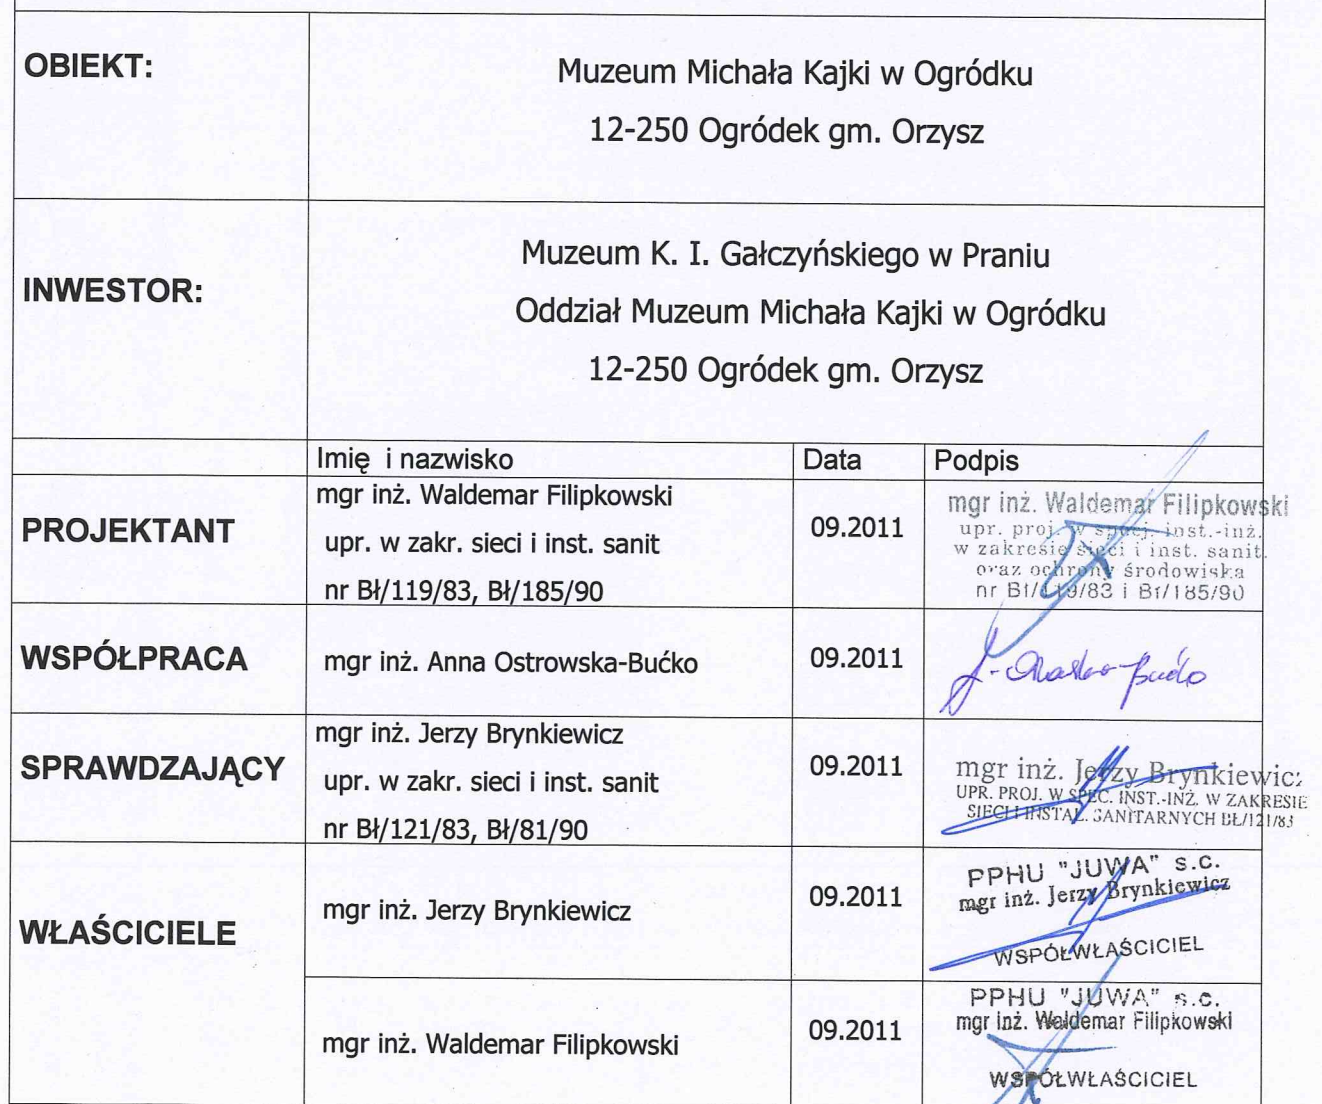 OBIEKT:
Muzeum Michała Kajki w Ogródku
12-250 Ogródek gm. Orzysz
INWESTOR:
Muzeum K. I. Gałczyńskiego w Praniu
Oddział Muzeum Michała Kajki w Ogródku
12-250 Ogródek gm. Orzysz
Imię i nazwisko Data Podpis
PROJEKTANT
mgr inż. Waldemar Filipkowski
upr. w zakr. sieci i inst. sanit
nr Bł/119/83, Bł/185/90
09.2011
mgr inż. Waldemar Filipkowski
upr. proj. w spec. inst.-inż.
w zakresie sieci i inst. sanit.
oraz ochrony środowiska
nr Bł/119/83 i Bł/185/90
WSPÓŁPRACA
mgr inż. Anna Ostrowska-Bućko
09.2011
SPRAWDZAJĄCY
mgr inż. Jerzy Brynkiewicz
upr. w zakr. sieci i inst. sanit
nr Bł/121/83, Bł/81/90
09.2011
mgr inż. Jerzy Brynkiewicz
UPR. PROJ. W SPEC. INST.-INŻ. W ZAKRESIE
SIECI I INSTAL. SANITARNYCH BŁ/121/83
WŁAŚCICIELE
mgr inż. Jerzy Brynkiewicz
09.2011
PPHU "JUWA" s.c.
mgr inż. Jerzy Brynkiewicz
WSPÓŁWŁAŚCICIEL
mgr inż. Waldemar Filipkowski
09.2011
PPHU "JUWA" s.c.
mgr inż. Waldemar Filipkowski
WSPÓŁWŁAŚCICIEL